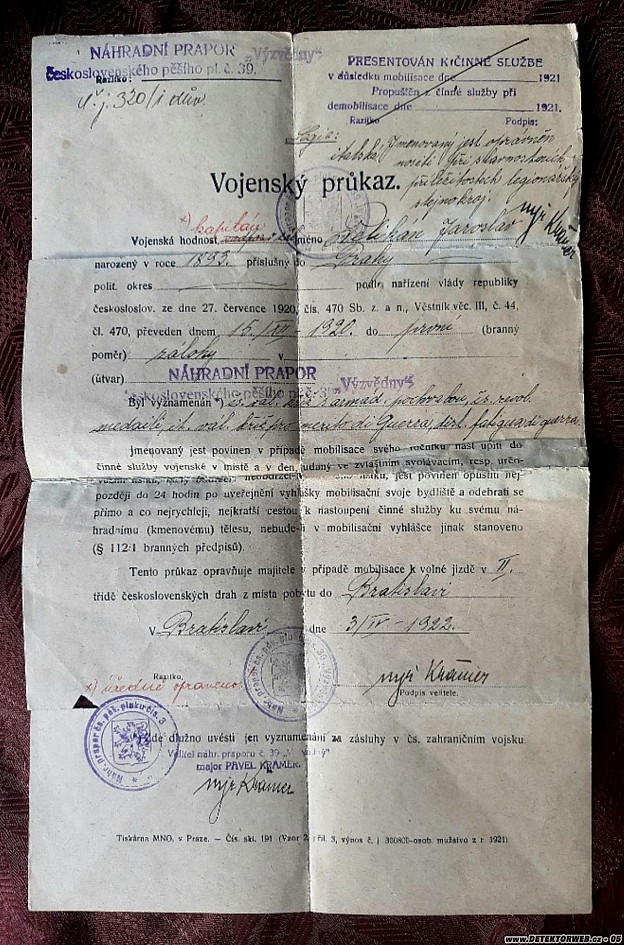 NÁHRADNÍ PRAPOR „Výzvědný“
československého pěšího pl. č. 39.
Razítko:
č. j. 320/I dův.
PRESENTOVÁN K ČINNÉ SLUŽBĚ
v důsledku mobilisace dne 1921
Propuštěn z činné služby při
demobilisace dne 1921.
Razítko Podpis:
Legie:
italská. Jmenovaný jest oprávněn
nositi při slavnostních
příležitostech legionářský
stejnokroj.
mjr Krämer
Vojenský průkaz.
x) kapitán
Vojenská hodnost jméno Pelikán Jaroslav
narozený v roce 1893. příslušný do Prahy
polit. okres podle nařízení vlády republiky
českoslov. ze dne 27. července 1920, čís. 470 Sb. z. a n., Věstník věc. III, č. 44,
čl. 470, převeden dnem 15./XII - 1920. do první (branný
poměr) zálohy v
(útvar)
NÁHRADNÍ PRAPOR „Výzvědný“
československého pěšího pl. č. 39.
Byl vyznamenán *) čs. vál. kříž, armád. pochvalou, čs. revol.
medailí, it. vál. kříž pro merito di Guerra, dist. fatiqua di guerra.
Jmenovaný jest povinen v případě mobilisace svého ročníku nastoupiti do
činné služby vojenské v místě a v den, udaný ve zvláštním svolávacím, resp. určen-
jest povinen opustiti nej-
později do 24 hodin po uveřejnění vyhlášky mobilisační svoje bydliště a odebrati se
přímo a co nejrychleji, nejkratší cestou k nastoupení činné služby ku svému ná-
hradnímu (kmenovému) tělesu, nebude-li v mobilisační vyhlášce jinak stanoveno
(§ 112:1 branných předpisů).
Tento průkaz opravňuje majitele v případě mobilisace k volné jízdě v II.
třídě československých drah z místa pobytu do Bratislavi
V Bratislavi dne 3/IV - 1922.
Razítko.
x) úředně opraveno.
mjr Krämer
Podpis velitele.
Náhr. prapor čs. pěš. pluku čís. 39
Zde dlužno uvésti jen vyznamenání za zásluhy v čs. zahraničním vojsku
Velitel náhr. praporu č. 39 „Výzvědný“
major PAVEL KRÄMER.
mjr Krämer
Tiskárna MNO. v Praze. — Čís. skl. 191 (Vzor 2, příl. 3, výnos č. j. 300800-osob. mužstvo z r. 1921)
www.DETEKTORWEB.cz - 05